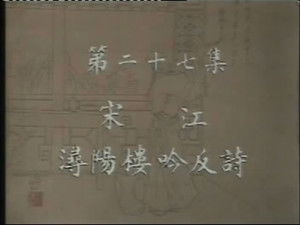 第二十七集
宋 江
潯陽樓吟反詩